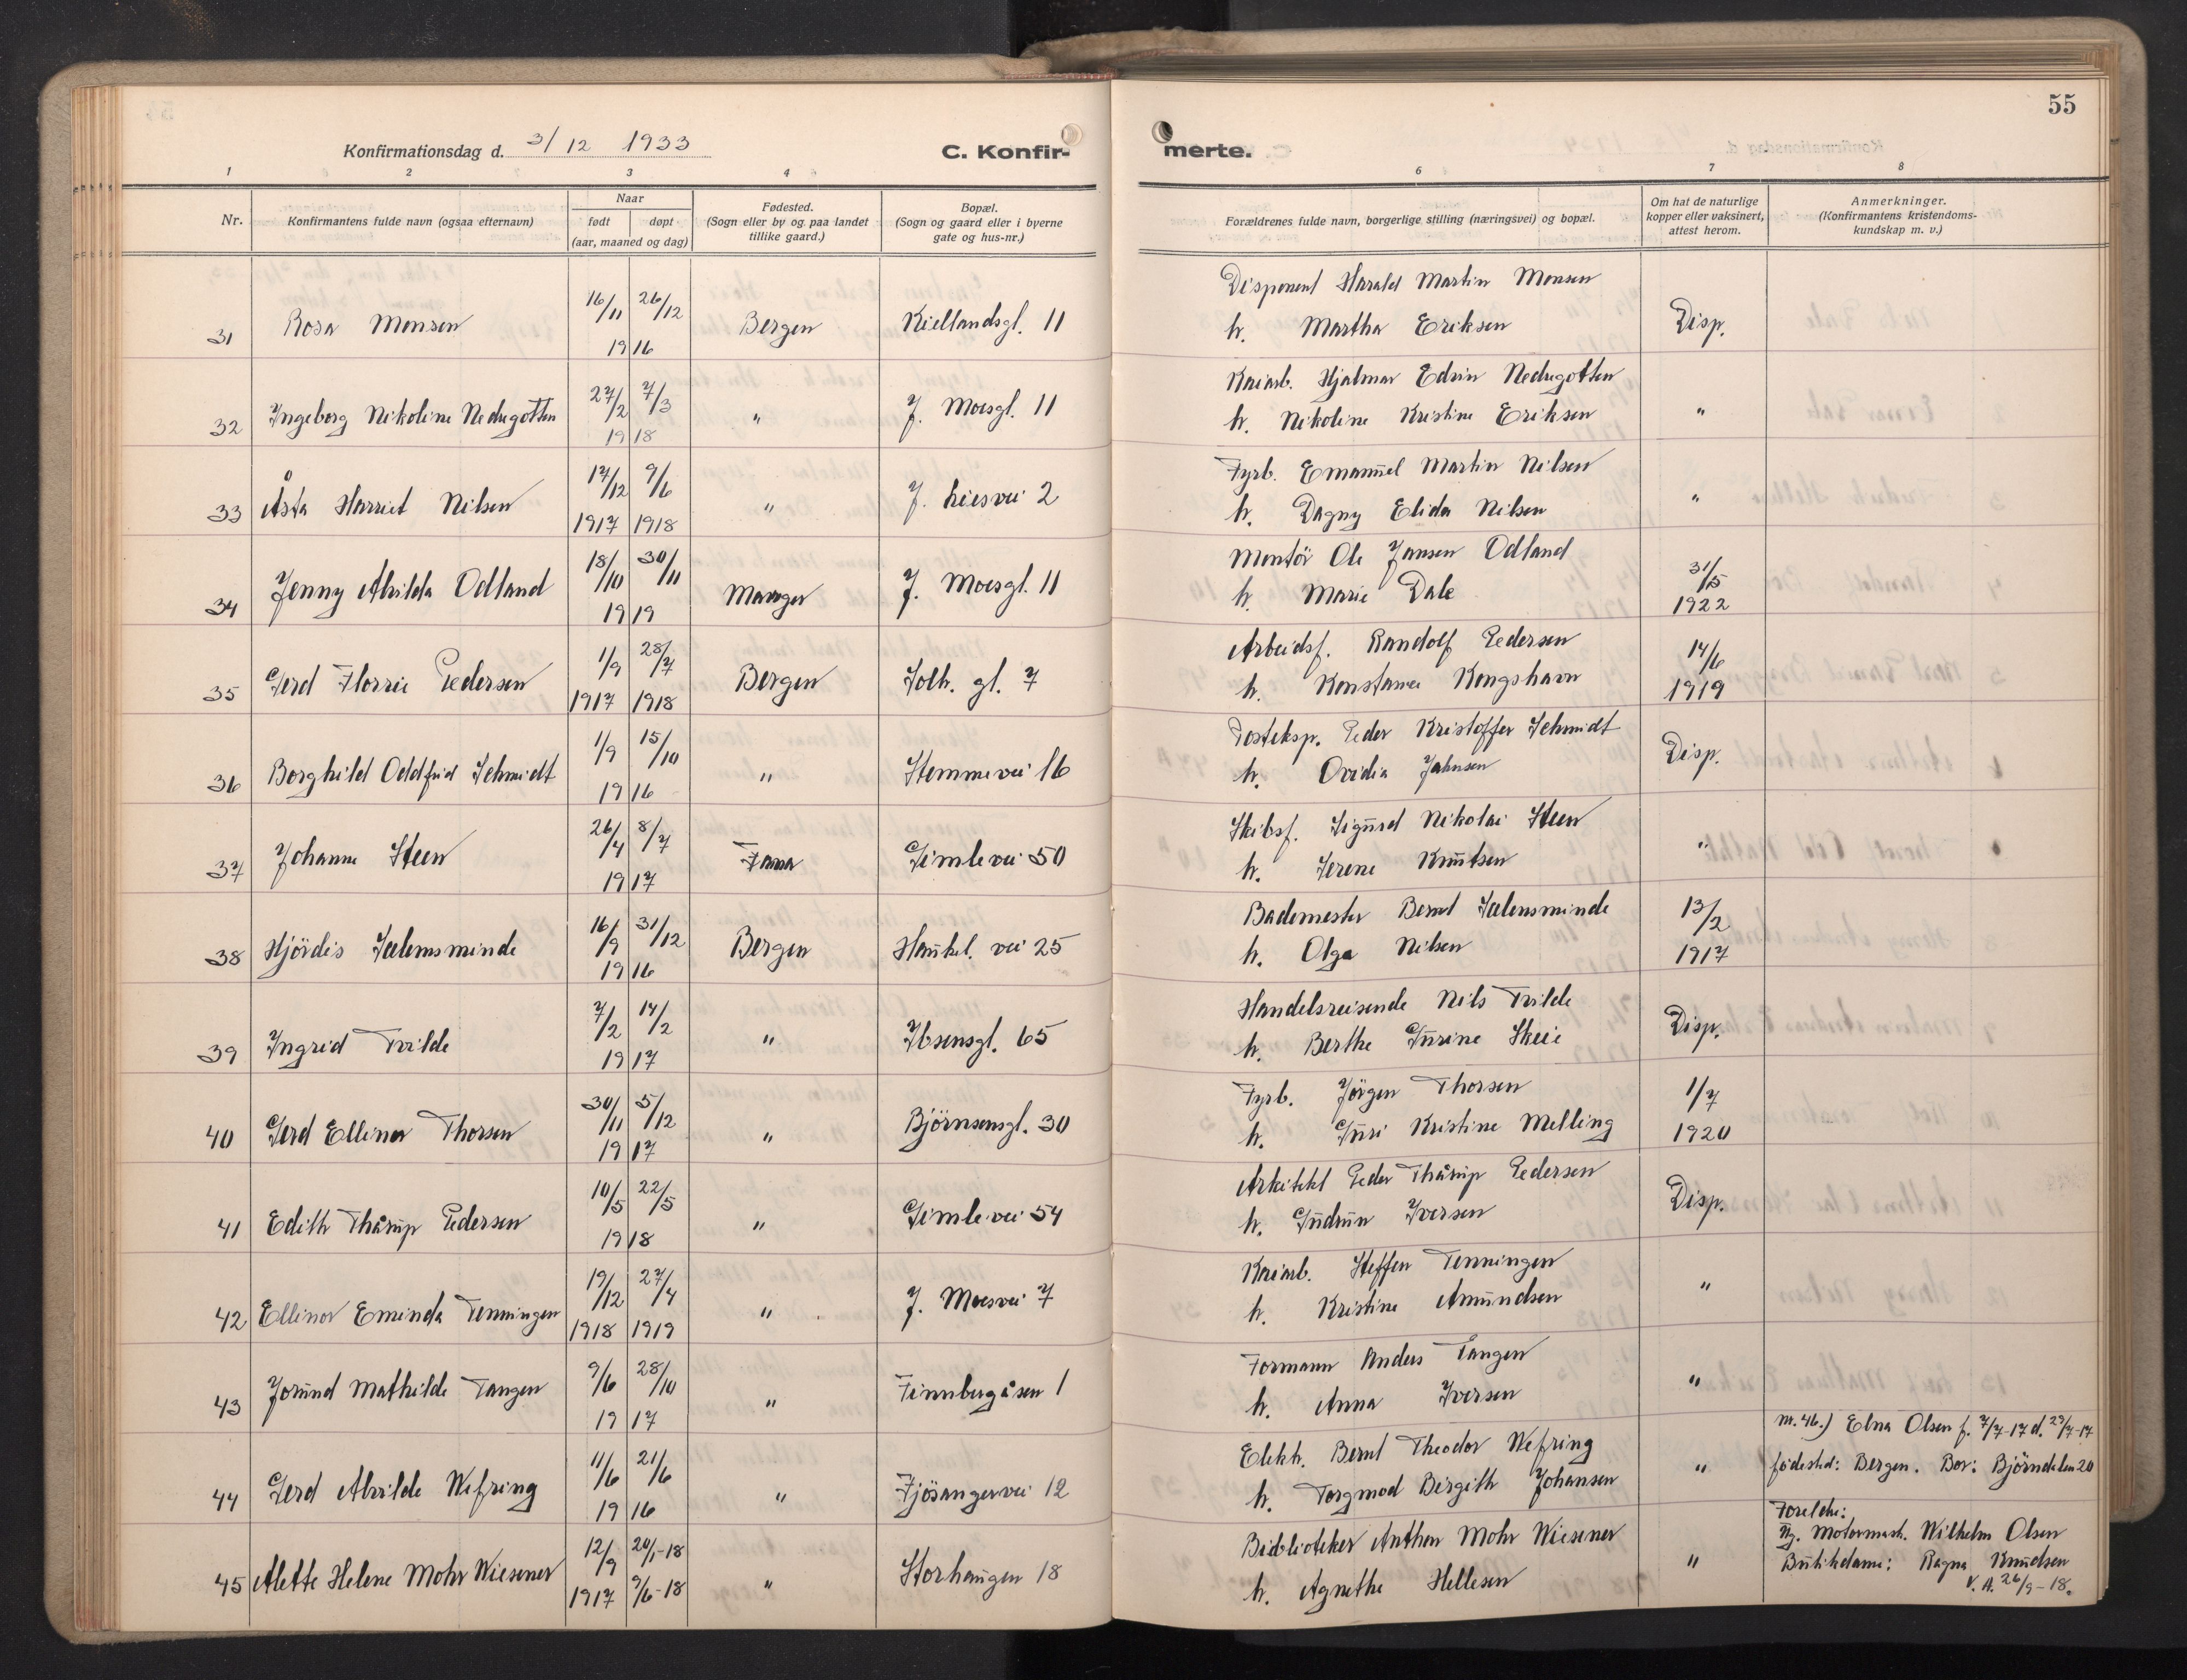 55
Konfirmationsdag d. 3/12 1933
C. Konfir-
merte.
1 2 3 4 6 7 8
Nr.
Konfirmantens fulde navn (ogsaa efternavn)
Naar
født døpt
(aar, maaned og dag)
Fødested.
(Sogn eller by og paa landet
tillike gaard.)
Bopæl.
(Sogn og gaard eller i byerne
gate og hus-nr.)
Forældrenes fulde navn, borgerlige stilling (næringsvei) og bopæl.
Om hat de naturlige
kopper eller vaksinert,
attest herom.
Anmerkninger.
(Konfirmantens kristendoms-
kundskap m. v.)
31 Rosa Monsen 16/11 26/12 1916 Bergen Kiellandsgt. 11
Disponent Harald Martin Monsen
h. Martha Eriksen Disp.
32 Ingeborg Nikoline Nedregotten 27/2 7/3 1918 " J. Moesgt. 11
Kaiarb. Hjalmar Edvin Nedregotten
h. Nikoline Kristine Eriksen "
33 Åsta Harriet Nilsen 17/12 1917 9/6 1918 " J. Liesvei 2
Fyrb. Emanuel Martin Nilsen
h. Dagny Elida Nilsen "
34 Jenny Alvilda Odland 18/10 30/11 1919 Manger J. Moesgt. 11
Montör Ole Jansen Odland
h. Marie Dale 31/5 1922
35 Gerd Florrie Pedersen 1/9 1917 28/7 1918 Bergen Solh. gt. 7
Arbeidsf. Randolf Pedersen
h. Konstance Kongshavn 14/6 1919
36 Borghild Oddfrid Schmidt 1/9 15/10 1916 " Stemmevei 16
Posteksp. Peder Kristoffer Schmidt
h. Ovidia Jahnsen Disp.
37 Johanne Steen 26/4 8/7 1917 Fana Gimlevei 50
Skibsf. Sigurd Nikolai Steen
h. Serene Knutsen "
38 Hjördis Salemsminde 16/9 31/12 1916 Bergen Haukel. vei 25
Bademester Bernt Salemsminde
h. Olga Nilsen 13/2 1917
39 Ingrid Tvilde 7/2 14/2 1917 " Ibsensgt. 65
Handelsreisende Nils Tvilde
h. Berthe Gurine Skeie Disp.
40 Gerd Ellinor Thorsen 30/11 5/12 1917 " Björnsensgt. 30
Fyrb. Jörgen Thorsen
h. Guri Kristine Melling 1/7 1920
41 Edith Thårup Pedersen 10/5 22/5 1918 " Gimlevei 54
Arkitekt Peder Thårup Pedersen
h. Gudrun Iversen Disp.
42 Ellinor Eminda Tenningen 19/12 1918 27/4 1919 " J. Moesvei 7
Kaiarb. Steffen Tenningen
h. Kristine Amundsen "
43 Jorund Mathilde Tangen 9/6 28/10 1917 " Finnbergåsen 1
Formann Anders Tangen
h. Anna Iversen "
44 Gerd Alvilde Wefring 11/6 21/6 1916 " Fjösangervei 12
Elekh. Bernt Theodor Wefring
h. Torgmod Birgith Johansen "
45 Alette Helene Mohr Wiesener 12/9 1917 20/1-18 9/6-18 " Storhaugen 18
Biblioteker Anthon Mohr Wiesener
h. Agnethe Hellesen "
nr. 46.) Elna Olsen f. 7/7-17 d. 29/7-17
födested: Bergen. Bor: Björndalen 20
Foreldre:
Ug. Motormask. Wilhelm Olsen
Butikdame: Ragna Knudsen
V. A. 26/9-18.